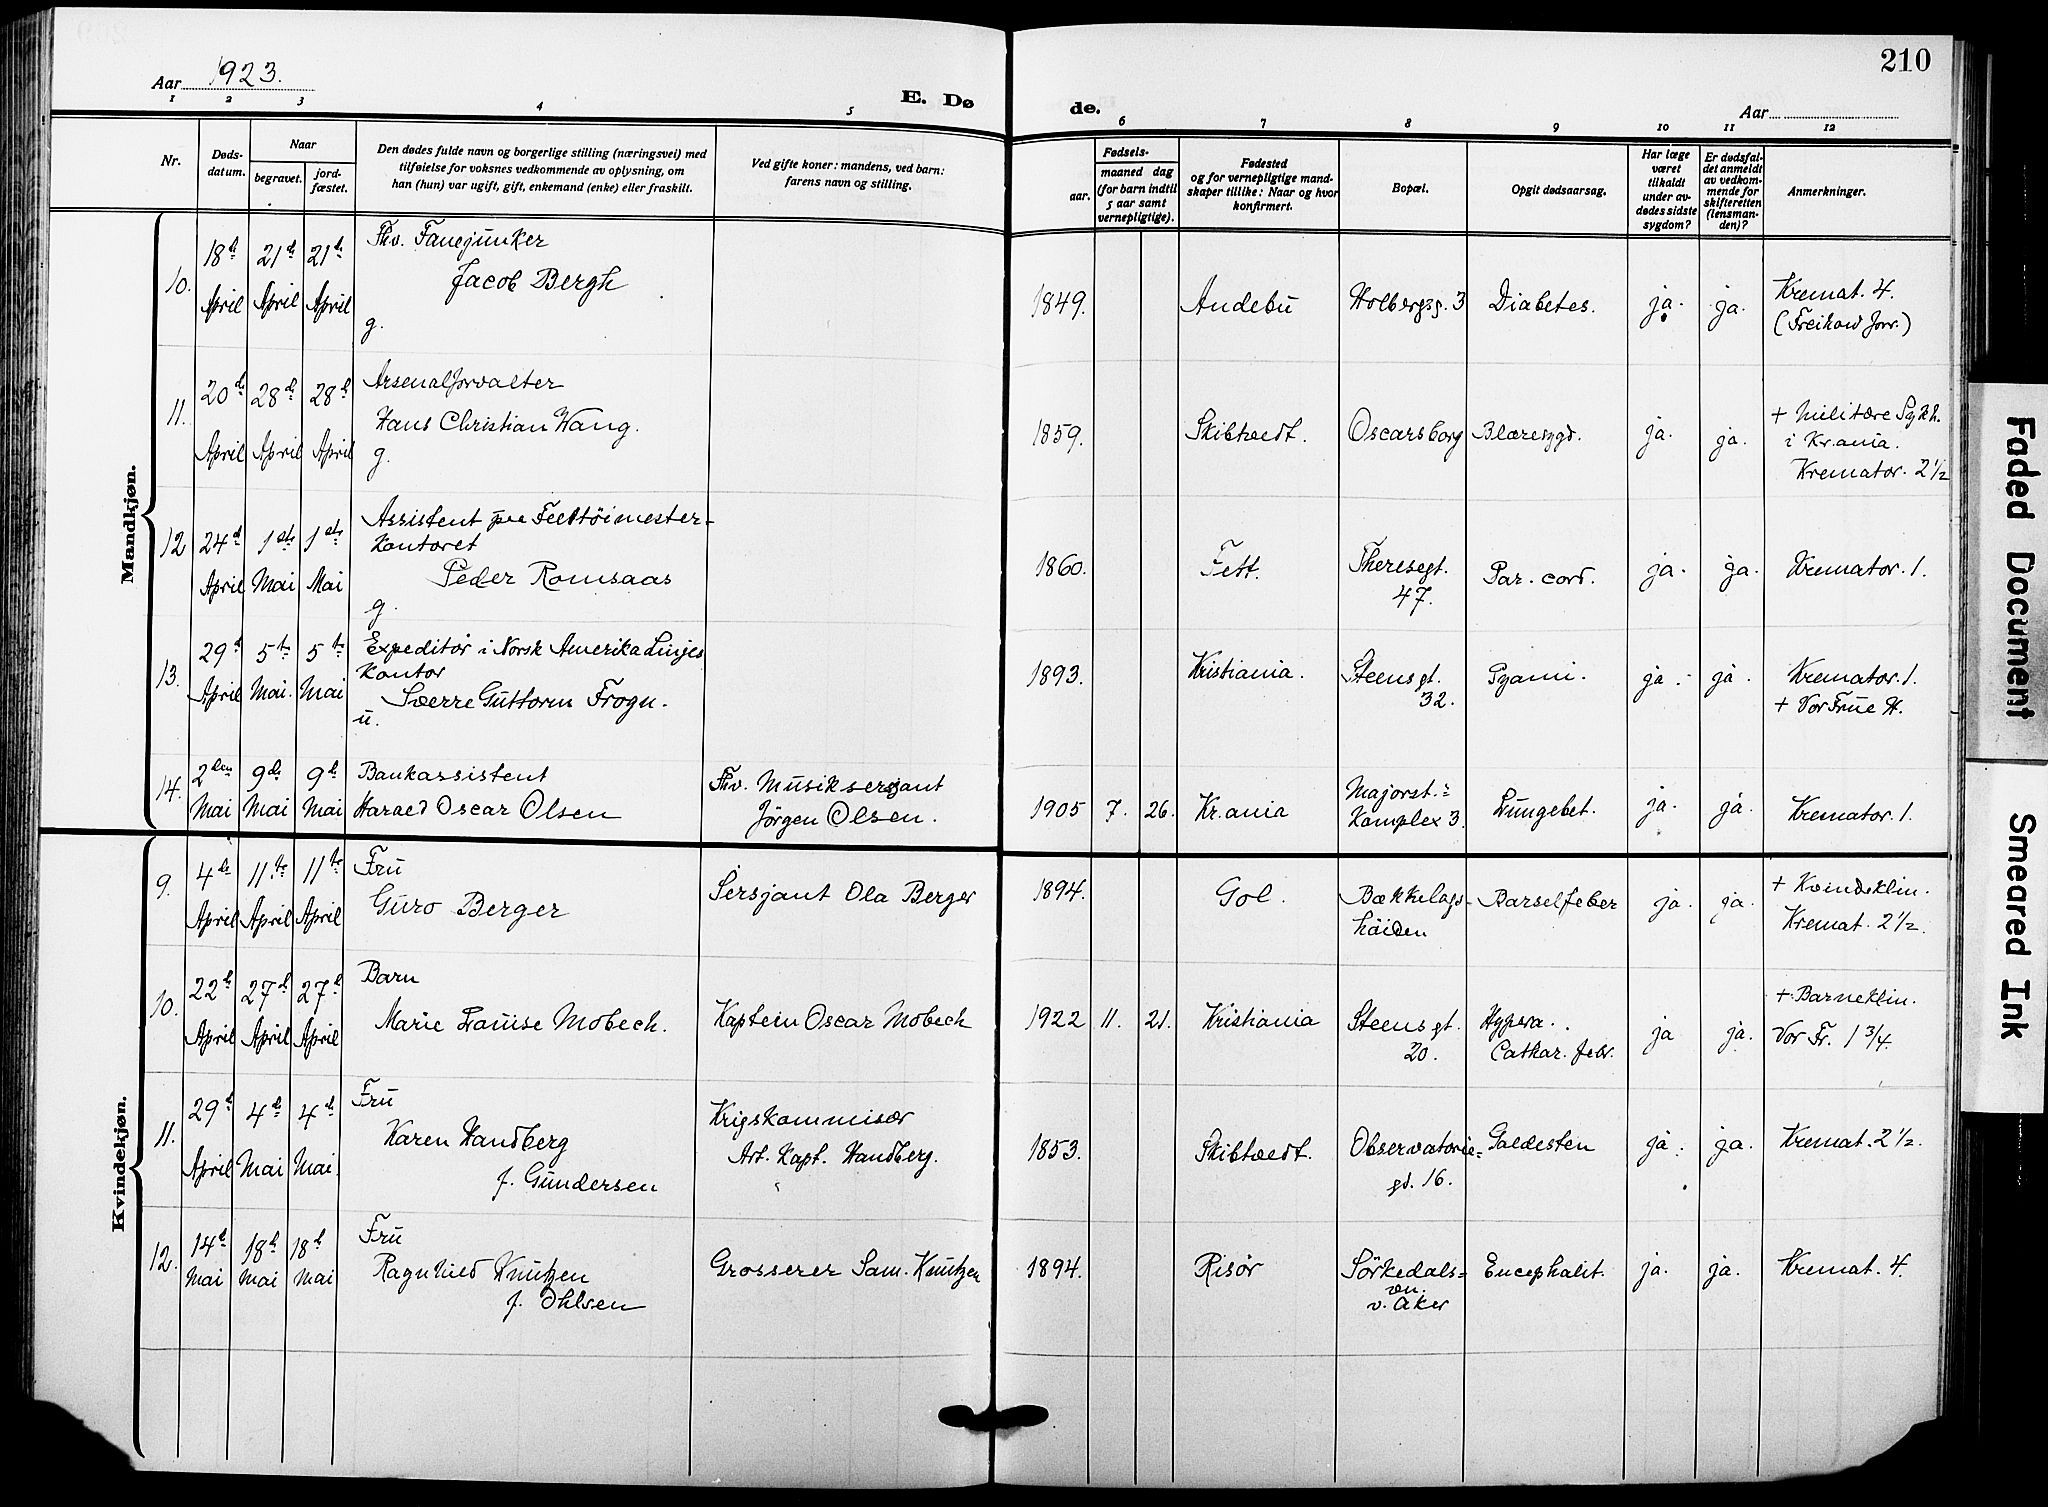 Aar 1923.
E. Dø
de.
Aar
210
1 2 3 4 5 6 7 8 9 10 11 12
Nr.
Døds-
datum.
Naar
begravet.
jord-
fæstet.
Den dødes fulde navn og borgerlige stilling (næringsvei) med
tilføielse for voksnes vedkommende av oplysning, om
han (hun) var ugift, gift, enkemand (enke) eller fraskilt.
Ved gifte koner: mandens, ved barn:
farens navn og stilling.
Fødsels-
aar.
maaned dag
(for barn indtil
5 aar samt
vernepligtige).
Fødested
og for vernepligtige mand-
skaper tillike: Naar og hvor
konfirmert.
Bopæl.
Opgit dødsaarsag.
Har læge
været
tilkaldt
under av-
dødes sidste
sygdom?
Er dødsfal-
det anmeldt
av vedkom-
mende for
skifteretten
(lensman-
den)?
Anmerkninger.
Mandkjøn.
10. 18d April 21d April 21d April
Fhv. Fanejunker
Jacob Bergh
g.
1849. Andebu Holbergsg. 3 Diabetes. ja. ja.
Kremat. 4.
11. 20d April 28d April 28d April
Arsenalforvalter
Hans Christian Wang.
g.
1859. Skibtvedt. Oscarsborg Blæresygd. ja. ja.
+ Militære Sykh.
i Kr.ania.
Kremator. 2½
12 24d April 1ste Mai 1ste Mai
Assistent Feltöimester-
kontoret
Peder Romsaas
g.
1860. Fett. Theresegt.
47.
Par. cord. ja. ja. Kremator. 1.
13. 29d April 5te Mai. 5te Mai
Expeditør i Norsk Amerika Linjes
kontor
Sverre Guttorm Frogn.
u.
1893. Kristiania. Steensgt.
32.
Pyämi. ja. ja.
Kremator. 1.
+ Vor Frue H.
14. 2den Mai 9de Mai 9d Mai
Bankassistent
Harald Oscar Olsen
Fhv. Musiksersjant
Jørgen Olsen.
1905 7. 26. Kr.ania
Majorst.=
Komplex 3.
Lungebet. ja. ja. Kremator. 1.
Kvindekjøn.
9. 4de April 11.te April 11te April
Fru
Guro Berger
Sersjant Ola Berger
1894. Gol. Bækkelags-
höiden
Barselfeber ja. ja.
+ Kvindeklin.
Kremat. 2½.
10. 22d April 27d April 27d April
Barn
Marie Louise Mobech.
Kaptein Oscar Mobech
1922 11. 21. Kristiania Steensgt.
20.
Cathar. febr. ja ja.
+ Barneklin.
Vor Fr. 1¾.
11. 29d April 4de Mai 4de Mai.
Fru
Karen Handberg
f. Gundersen
Krigskommisær
Art. Kapt. Handberg.
1853. Skibtvedt. Observatorie=
gt. 16.
Galdesten ja. ja. Kremat. 2½.
12. 14d Mai 18d Mai 18d Mai
Fru
Ragnhild Knutzen
f. Ohlsen
Grosserer Sam. Knutzen
1894. Risør Sörkedals=
vn.
v. Aker
Encephalit. ja. ja. Kremat. 4.
Faded Document
Smeared Ink